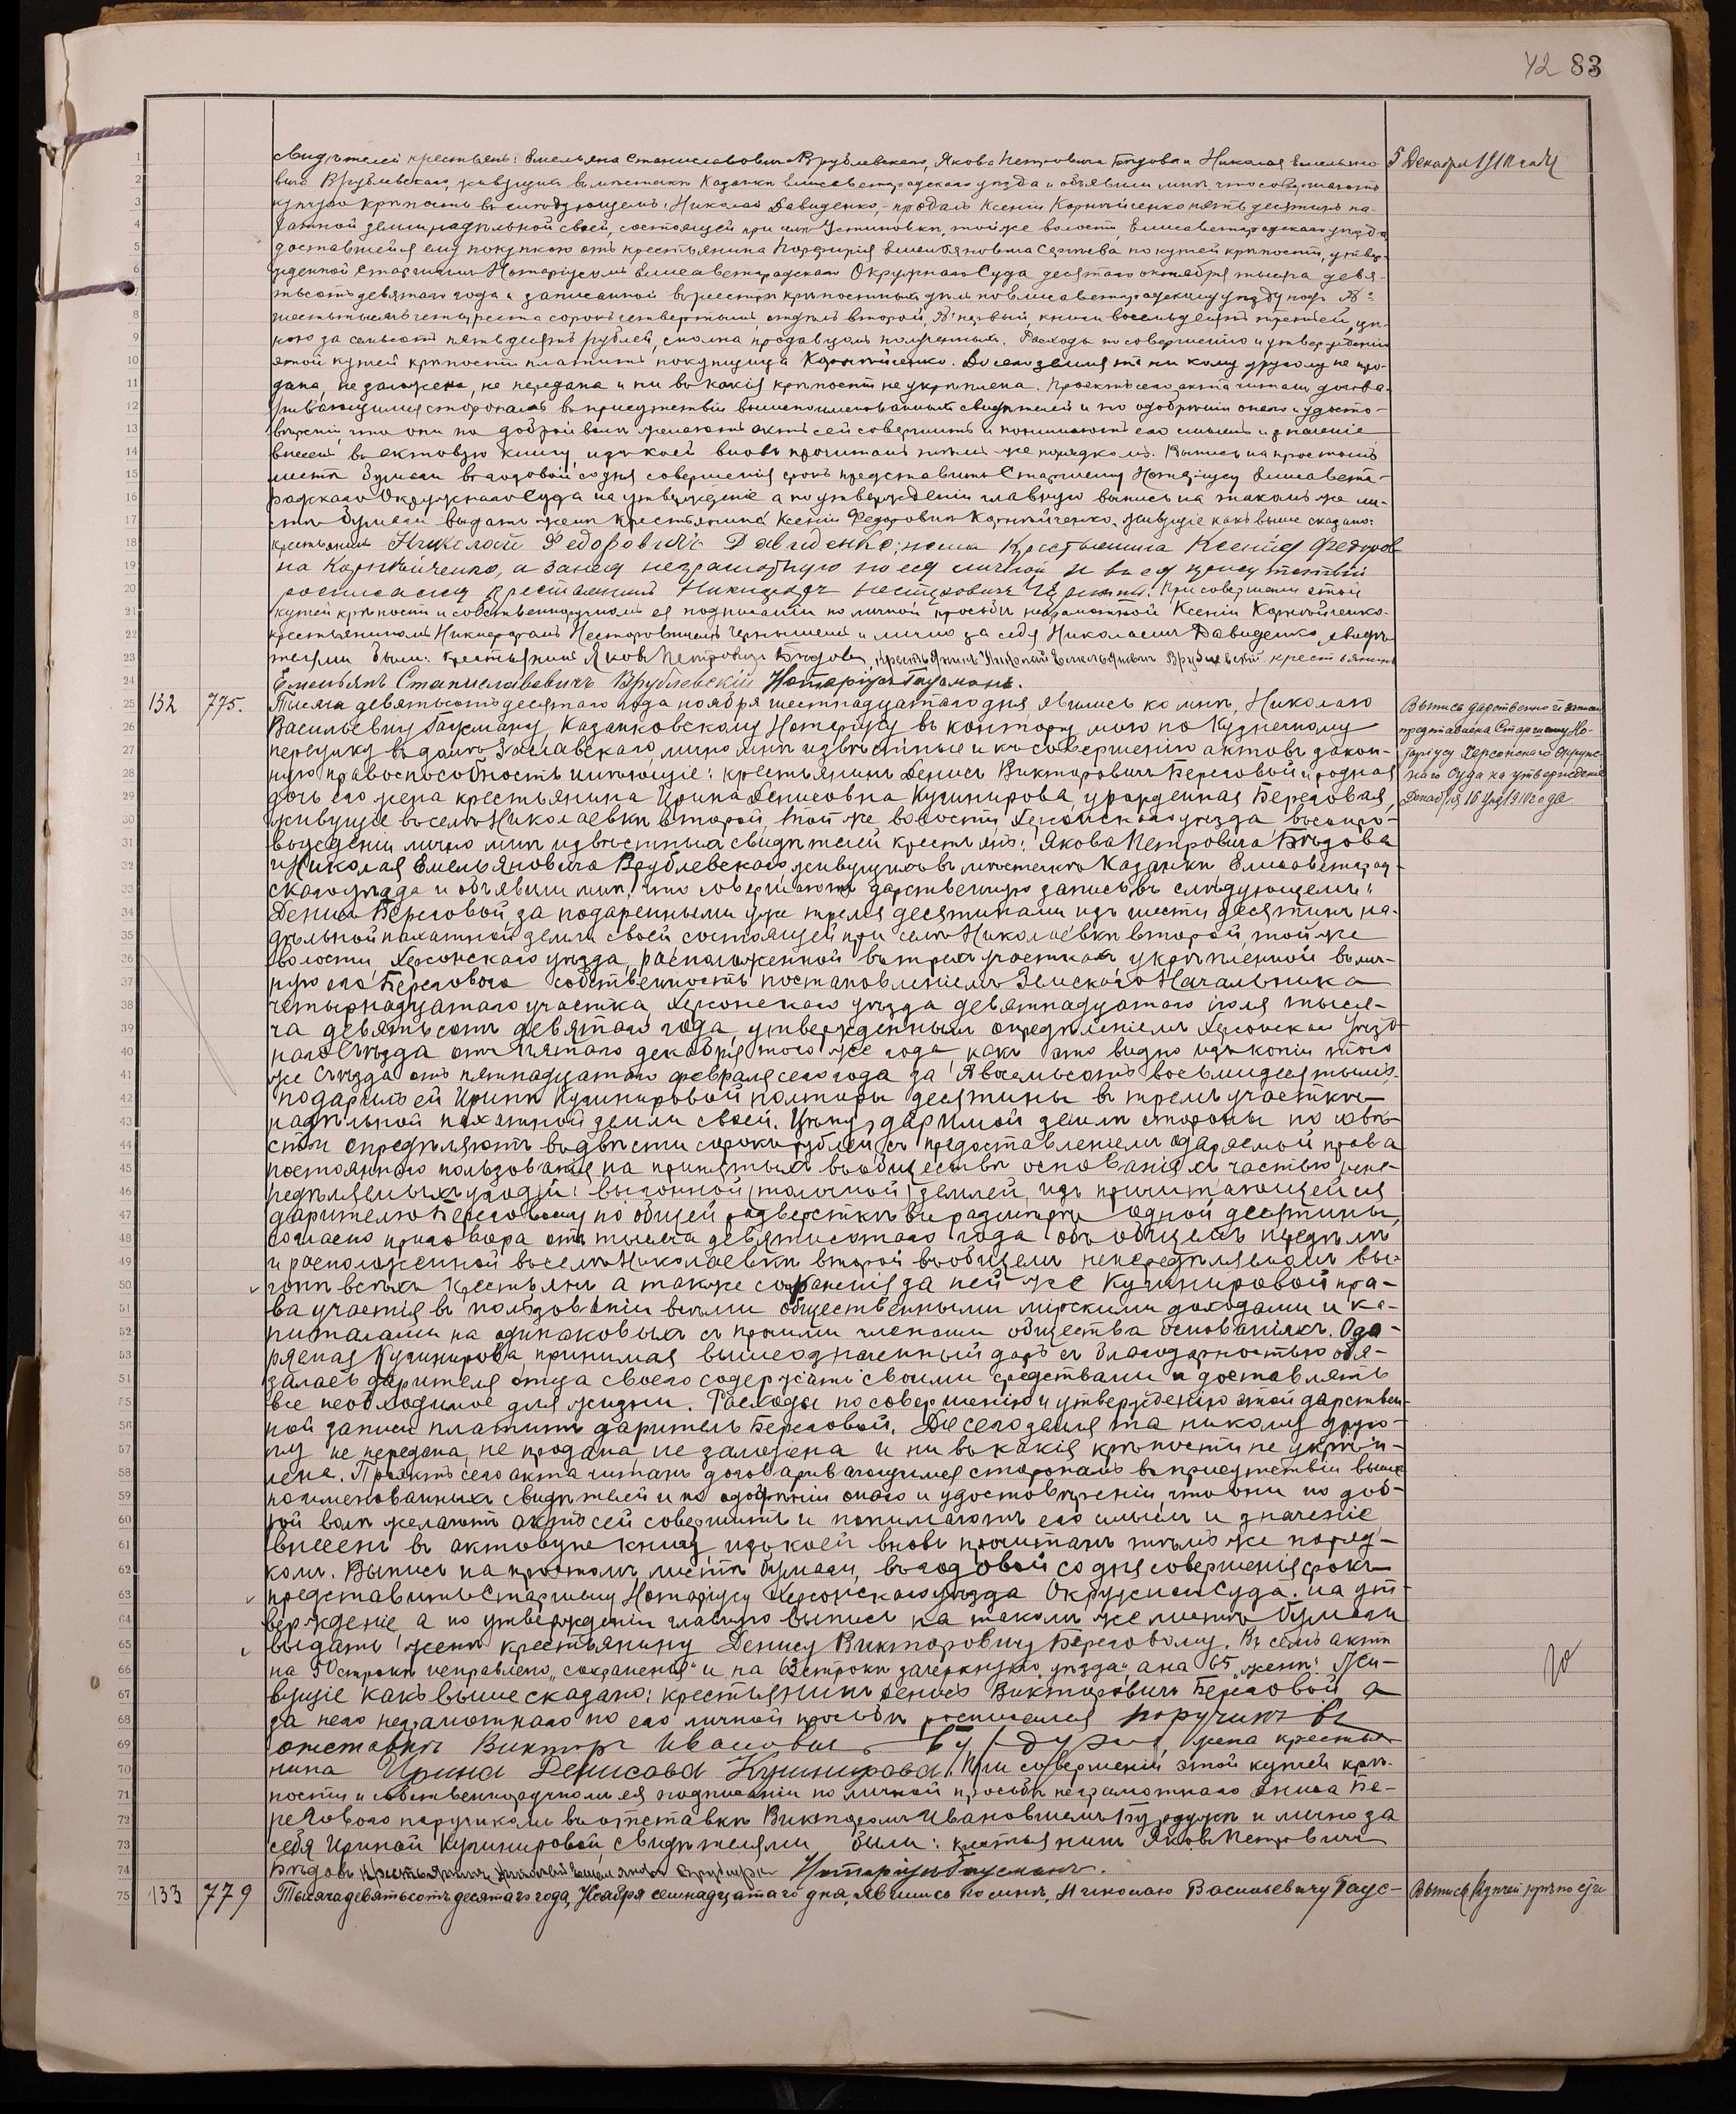 42 83
свидѣтелей крестьянъ: Емельяна Станиславовича Врублевскаго, Якова Петровича Бѣдова и Николая Емельяно-
вича Врублевскаго, живущихъ въ мѣстечкѣ Казанкѣ Елисаветградскаго уѣзда и объявили мнѣ что совершаютъ
купчую крѣпость въ слѣдующемъ: Николай Давиденко, продалъ Ксеніи Корнѣйченко пять десятинъ па-
хатной земли надѣльной своей, состоящей при селѣ Устиновкѣ, той же волости, Елисаветградскаго уѣзда,
доставшейся ему покупкою отъ крестьянина Порфирія по купчей крѣпости, утвер-
жденной Старшимъ Нотаріусомъ Елисаветградскаго Окружнаго Суда десятаго октября тысяча девя-
тьсотъ девятаго года и записанной въ реестрѣ крѣпостныхъ дѣлъ по Елисаветградскому уѣзду подъ №
шесть тысячъ четыреста сорокъ четвертымъ, отдѣлъ второй, № первый, книги восемьдесятъ третьей, цѣ-
ною за семьсотъ пятьдесятъ рублей, сполна продавцомъ полученныхъ. Расходы по совершенію и утвержденію
этой купчей крѣпости платитъ покупщица Корнѣйченко. До сего земля та ни кому другому не про-
дана, не заложена, не передана и ни въ какія крѣпости не укрѣплена. Проектъ сего акта читанъ догова-
ривающимся сторонамъ въ присутствіи вышепоименованныхъ свидѣтелей и по одобреніи онаго и удосто-
вѣреніи, что они по доброй волѣ желаютъ актъ сей совершить и понимаютъ его смыслъ и значеніе
внесенъ въ актовую книгу, изъ коей вновь прочитанъ тѣмъ же порядкомъ. Выпись на простомъ
листѣ бумаги въ годовой со дня совершенія срокъ представить Старшему Нотаріусу Елисавет-
градскаго Окружнаго Суда на утвержденіе а по утвержденіи главную выпись на такомъ же ли-
стѣ бумаги выдать женѣ крестьянина Ксеніи Федоровнѣ Корнѣйченко. Живущіе какъ выше сказано:
крестьянинъ Николай Федоровичъ Давиденко; жена Крестьянина Ксенія Федоров
на Корнѣйченко, а за нея неграмотную по ея личной и въ ея присутствіи
росписался крестьянинъ Никифоръ Несторовичъ При совершеніи этой
купчей крѣпости и собственноручномъ ея подписаніи по личной просьбѣ неграмотной Ксеніи Корнѣйченко
крестьяниномъ Никифоромъ Несторовичемъ и лично за себя Николаемъ Давиденко, свидѣ-
телями были: крестьянинъ Яковъ Петровичъ Бѣдовъ, крестьянинъ Николай Емельяновичъ Врублевскій крестьянинъ
Емельянъ Станиславовичъ Врублевскій Нотаріусъ Гаусманъ.
5 Декабря 1910 года
132 775. Тысяча девятьсотъ десятаго года ноября шестнадцатаго дня явились ко мнѣ, Николаю
Васильевичу Гаусману, Казанковскому Нотаріусу въ контору мою по Кузнечному
переулку въ домѣ Заславскаго, лично мнѣ извѣстные и къ совершенію актовъ закон-
ную правоспособность имѣющіе: крестьянинъ Денисъ Викторовичъ Береговой и родная
дочь его жена крестьянина Ирина Денисовна Кушнирова, урожденная Береговая,
живущіе въ селѣ Николаевкѣ второй, той же волости Херсонскаго уѣзда, въ сопро-
вожденіи лично мнѣ извѣстныхъ свидѣтелей крестьянъ: Якова Петровича Бѣдова
и Николая Емельяновича Врублевскаго, живущихъ въ мѣстечкѣ Казанкѣ Елисаветград-
скаго уѣзда и объявили мнѣ, что совершаютъ дарственную запись въ слѣдующемъ:
Денисъ Береговой, за подаренными уже тремя десятинами изъ шести десятинъ на-
дѣльной пахатной земли своей состоящей при селѣ Николаевкѣ второй, той же
волости, Херсонскаго уѣзда, расположенной въ трехъ участкахъ укрѣпленной въ лич-
ную его Берегового собственность постановленіемъ Земскаго Начальника
четырнадцатаго участка, Херсонскаго уѣзда девятнадцатаго іюля тыся-
ча девятьсотъ девятаго года, утвержденнымъ опредѣленіемъ Херсонскаго Уѣзд-
наго Съѣзда отъ пятаго декабря того же года, какъ это видно изъ копіи того
же Съѣзда отъ пятнадцатаго февраля сего года за № восемьсотъ восьмидесятымъ
подарилъ ей Иринѣ Кушнировой полторы десятины въ трехъ участкахъ
надѣльной пахатной земли своей. Цѣну даримой земли стороны по совѣ-
сти опредѣляютъ въ двѣсти сорокъ рублей, съ предоставленіемъ одаряемой права
постояннаго пользованія на принятыхъ въ обществѣ основаніяхъ частью непе-
редѣляемыхъ угодій: выгонной (толочной) землей, изъ причитающейся
дарителю Береговому по общей разверсткѣ въ размѣрѣ одной десятины,
согласно приговора отъ тысяча девятисотаго года объ общемъ предѣлѣ
и расположенной въ селѣ Николаевкѣ второй въ общемъ непередѣляемомъ вы-
гонѣ всѣхъ крестьянъ а также сохраненія за ней же Кушнировой пра-
ва участія въ пользованіи всѣми общественными мірскими доходами и ка-
питалами на одинаковыхъ съ прочими членами общества основаніяхъ. Ода-
ряемая Кушнирова, принимая вышеозначенный даръ съ благодарностью обя-
залась дарителя отца своего содержать своими средствами и доставлять
все необходимое для жизни. Расходы по совершенію и утвержденію этой дарствен-
ной записи платитъ даритель Береговой. До сего земля та никому друго-
му не передана, не продана, не заложена и ни въ какія крѣпости не укрѣп-
лена. Проектъ сего акта читанъ договаривающимся сторонамъ въ присутствіи выше
поименованныхъ свидѣтелей и по одобреніи онаго и удостовѣреніи, что они по доб-
рой волѣ желаютъ актъ сей совершить и понимаютъ его смыслъ и значеніе
внесенъ въ актовую книгу, изъ коей вновь прочитанъ тѣмъ же поряд-
комъ. Выпись на простомъ листѣ бумаги, въ годовой со дня совершенія срокъ
представить Старшему Нотаріусу Херсонскаго уѣзда Окружнаго Суда на ут-
вержденіе а по утвержденіи главную выпись на такомъ же листѣ бумаги
выдать женѣ крестьянину Денису Викторовичу Береговому. Въ семъ актѣ
на 50 строкѣ исправлено „сохраненія" и на 63 строкѣ зачеркнуто „уѣзда" а на 65 „женѣ" Жи-
вущіе какъ выше сказано: крестьянинъ Денисъ Викторовичъ Береговой а
за него неграмотнаго по его личной просьбѣ росписался поручикъ въ
отставкѣ Викторъ Ивановичъ жена крестья-
нина Ирина Денисова Кушнирова. При совершеніи этой купчей крѣ-
пости и собственноручномъ ея подписаніи по личной просьбѣ неграмотнаго Дениса Бе-
регового поручикомъ въ отставкѣ Викторомъ Ивановичемъ и лично за
себя Ириной Кушнировой, свидѣтелями были: крестьянинъ Яковъ Петровичъ
Бѣдовъ крестьянинъ Николай Нотаріусъ Гаусманъ.
Выпись дарственной записи
представлена Старшему Но-
таріусу Херсонскаго Окруж-
наго Суда на утвержденіе
Декабря 16 дня 1910 года
133 779 Тысяча девятьсотъ десятаго года, Ноября семнадцатаго дня, явились ко мнѣ, Николаю Васильевичу Гаус-
Выпись купчей крѣпости